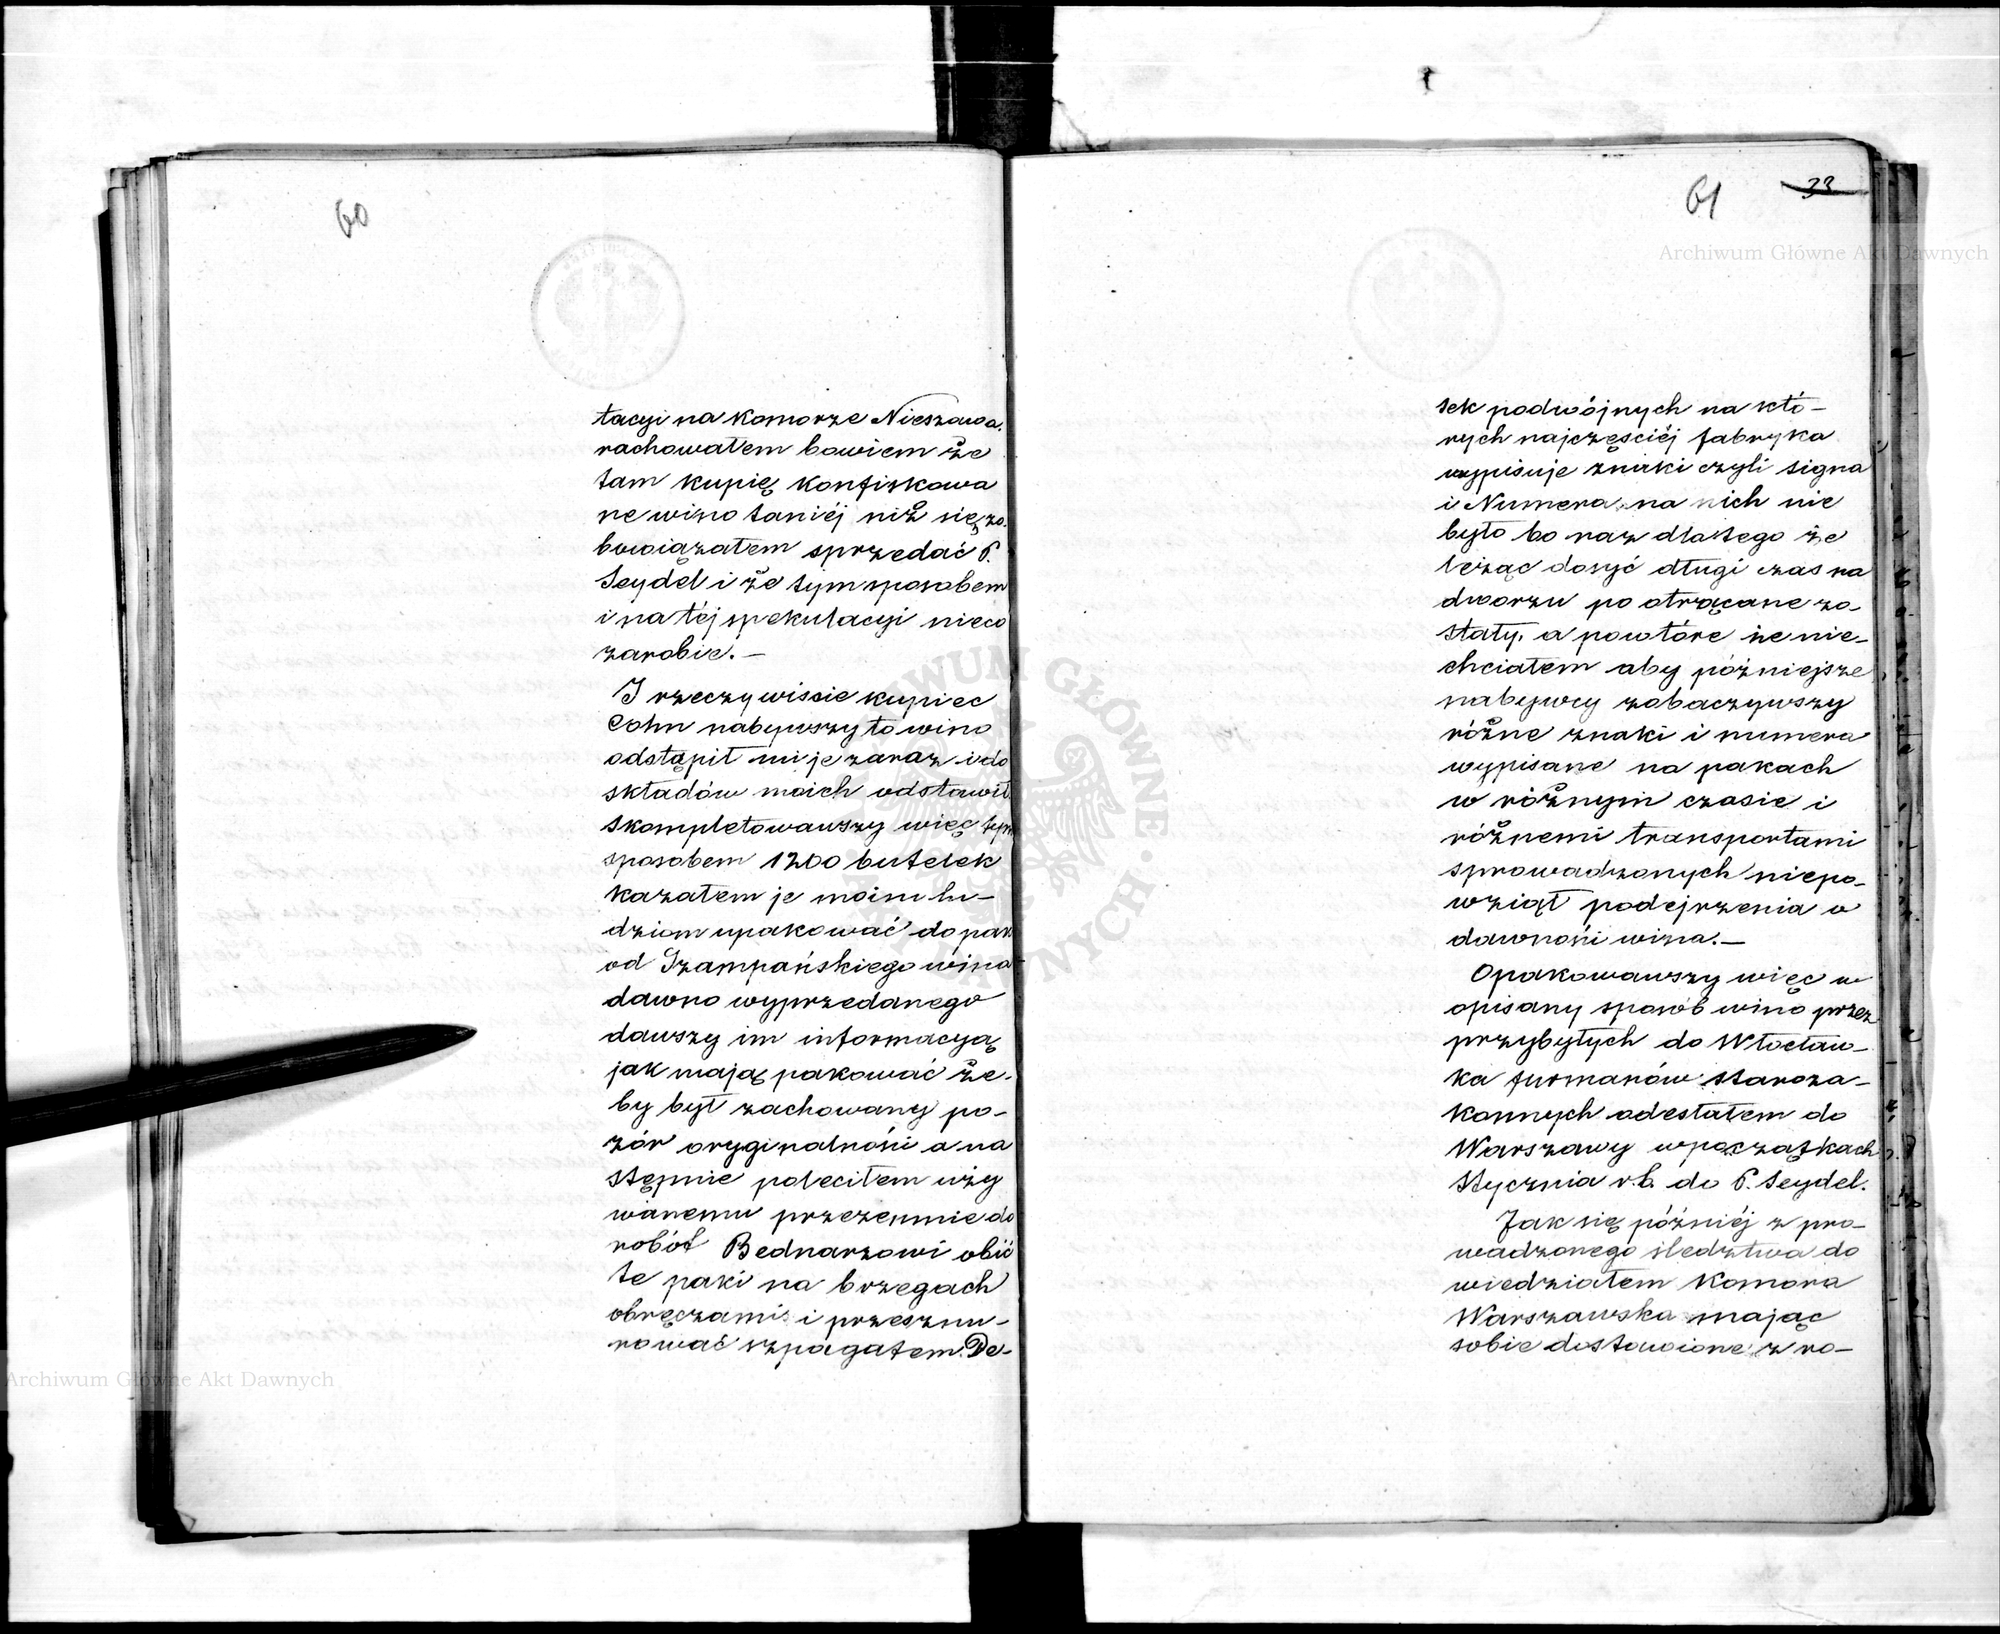 60
tacyi na Komorze Nieszawa.
rachowałem bowiem że
tam kupię konfiskowa
ne wino taniéj niż się zo.
bowiązałem sprzedać P.
Seydel i że tym sposobem
i na téj spekulacyi nieco
zarobie. —
I rzeczywiście kupiec
Cohn nabywszy to wino
odstąpił mi je zaraz i do
składów moich odstawił
skompletowawszy więc tym
sposobem 1200 butelek
kazałem je moim lu-
dziom upakować do pak
od Szampańskiego wina
dawno wyprzedanego
dawszy im informacyą
jak mają pakować że-
by był zachowany po-
zór oryginalności a na
stępnie poleciłem uży
wanemu przezemnie do
robót Bednarzowi obić
te paki na brzegach
obręczami i przesznu-
rować szpagatem. De-
61 33
sek podwójnych na któ-
rych najczęściéj fabryka
wypisuje znaki czyli signa
i Numera, na nich nie
było bo raz dlatego że
leżąc dosyć długi czas na
dworzu po otrącane zo-
stały, a powtóre że nie-
chciałem aby późniejsze
nabywcy zobaczywszy
różne znaki i numera
wypisane na pakach
w różnym czasie i
różnemi transportami
sprowadzonych niepo-
wziął podejrzenia o
dawności wina. —
Opakowawszy więc w
opisany sposób wino przez
przybyłych do Włocław-
ka furmanów staroza-
konnych odesłałem do
Warszawy w początkach
Stycznia r.b. do P. Seydel.
Jak się późniéj z pro-
wadzonego śledztwa do
wiedziałem Komora
Warszawska mając
sobie dostawione z ro-
Archiwum Główne Akt Dawnych
Archiwum Główne Akt Dawnych